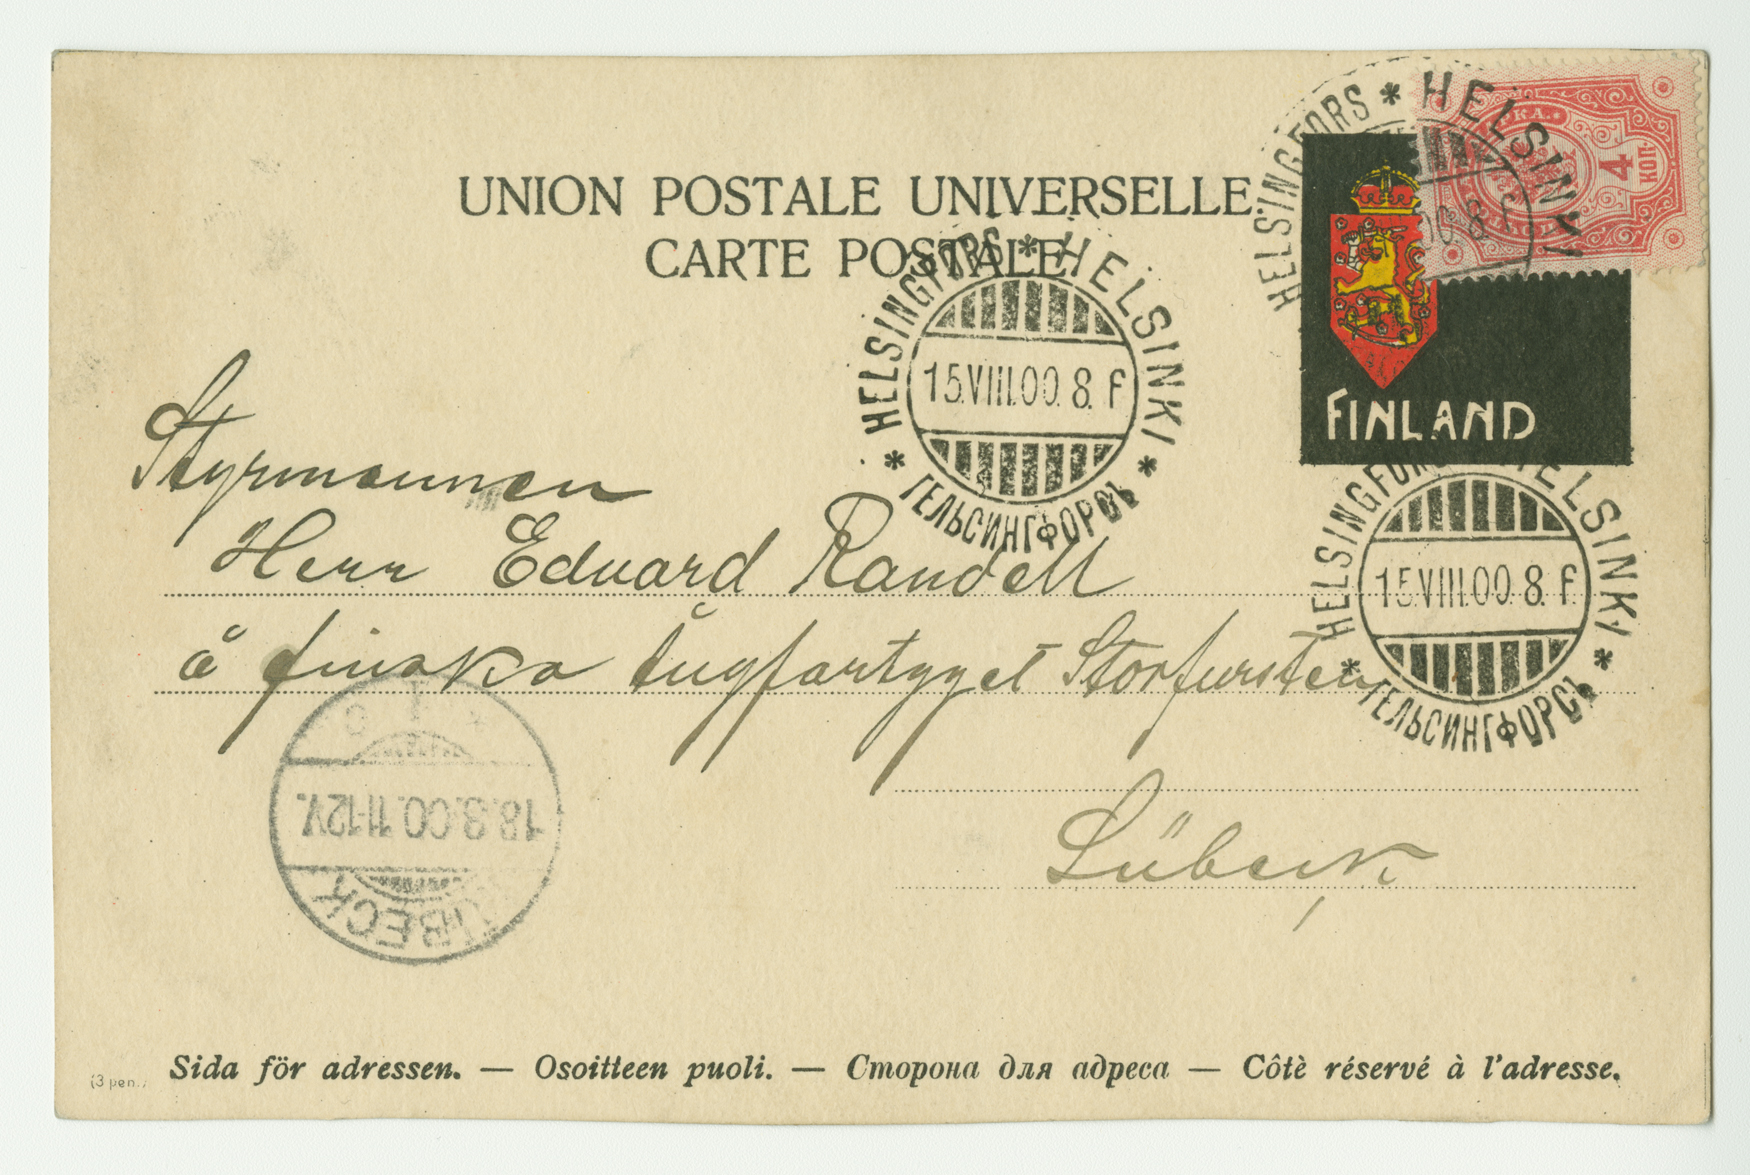 UNION POSTALE UNIVERSELLE.
CARTE POSTALE.
HELSINGFORS * HELSINKI
МАРКА.
4 КОП.
00.8 F
FINLAND
HELSINGFORS * HELSINKI * ГЕЛЬСИНГФОРСЪ *
15.VIII.00. 8. F
HELSINGFORS * HELSINKI * ГЕЛЬСИНГФОРСЪ *
15.VIII.00. 8. F
Styrmannen
Herr Eduard Randell
å finska tugfartyget Storfursten
Lübeck
LÜBECK
18.8.00.11-12V.
(3 pen.)
Sida för adressen. — Osoitteen puoli. — Сторона для адреса — Côtè réservé à l'adresse.